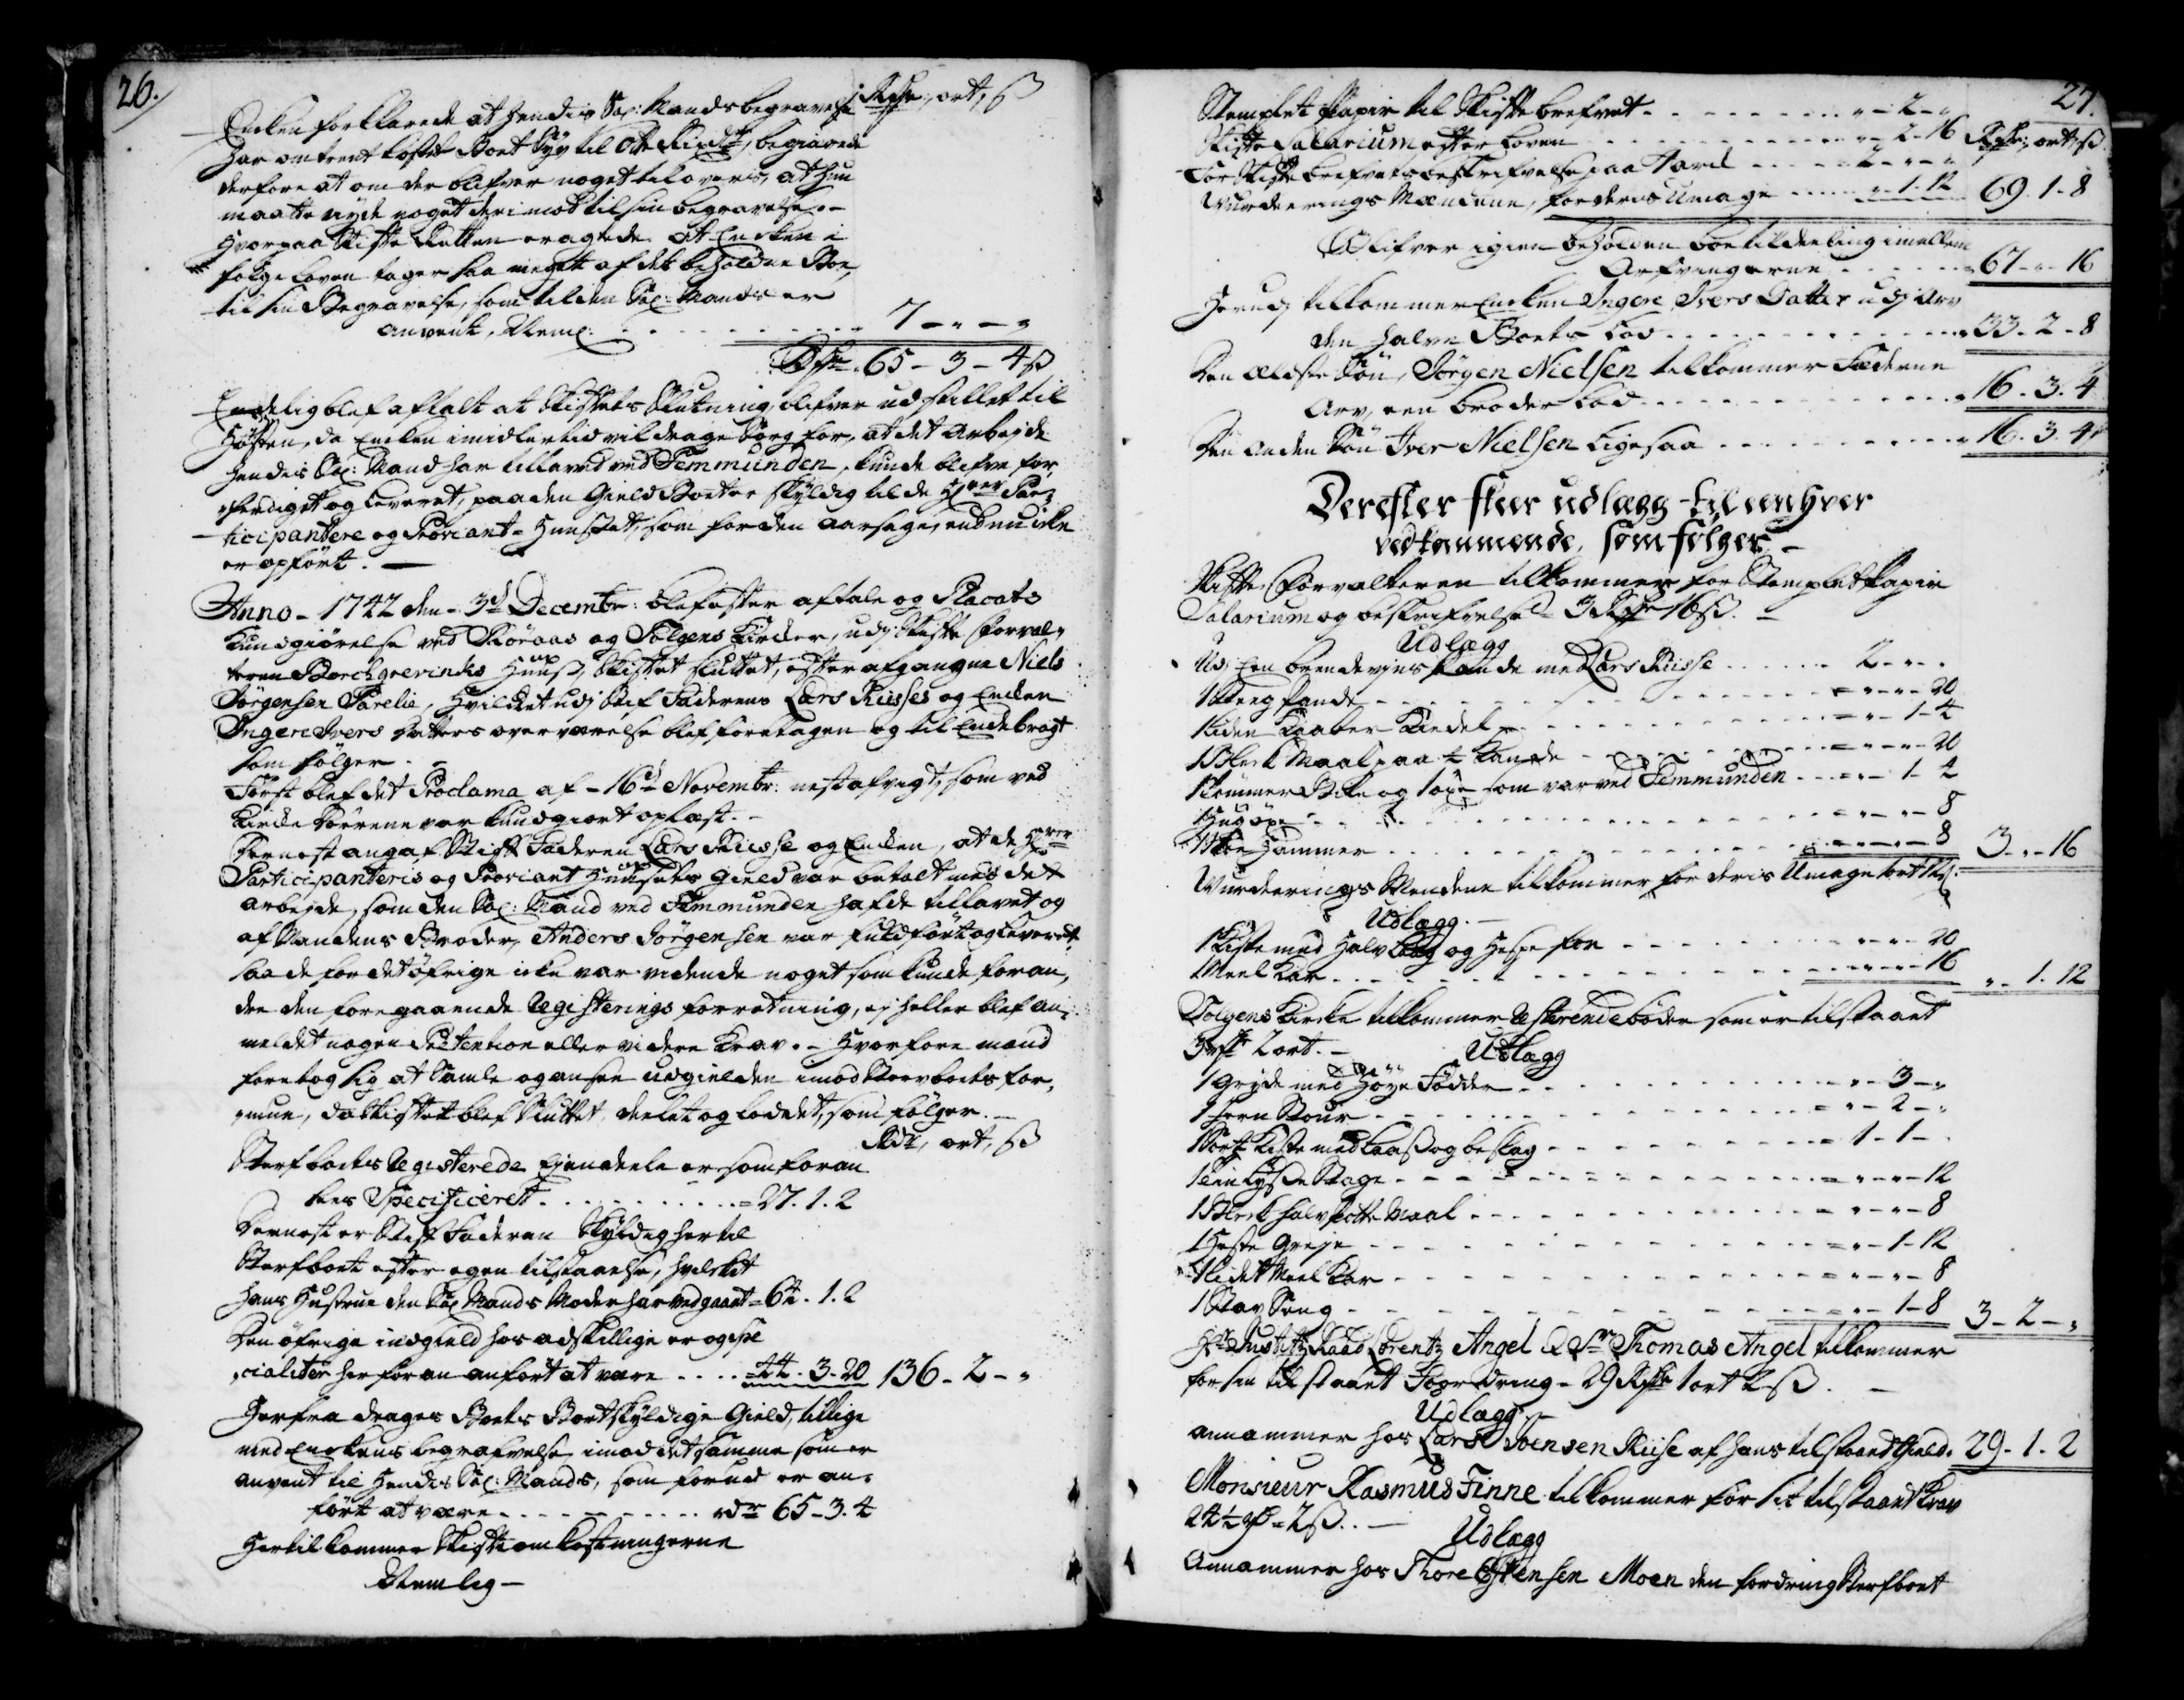 26.
Rdr, ort, ß
Encken forklarede at hendis Sal: Mands begravelse
har omtrent kostet Boet Syv til Otte Rixdlr, begiærede
derfore at om der blifver noget til overs, at hun
maatte nyde noget derimod til sin begravelse. –
Hvorpaa Skifte Retten eragtede at Encken i
følge Loven tager saa meget af det beholdne Boe,
til sin Begravelse, som til den Sal: Mands er
anvent, Neml: 7 – „ – „
Rdr 65 – 3 – 4 ß
Endelig blef aftalt at Skiftets Slutning blifver udstillet til
Høsten, da Encken imidlertid vil drage Sorg for, at det Arbejde
hendis Sal: Mand har tillavet ved Femmunden, kunde blifve for,
færdiget og leveret, paa den Gield Boet er skyldig til de Hrer Par,
ticipantere og Proviant-Huuset, som for den aarsage, endnu icke
er opført. —
Anno – 1742 den – 3d Decembr: blef efter aftale og Placats
kundgiørelse ved Røraas og Tolgens Kircker, udj Skifte Forval,
teren Borchgrevincks Huus, Skiftet sluttet, efter afgangne Niels
Jørgensen Sarelie, hvilcket udj Stif Faderens Lars Riises og Encken
Ingere Ivers Datters overværelse blef foretagen og til Ende bragt
som følger. –
Først blef det Proclama af – 16d Novembr: nest afvigt, som ved
Kircke Dørrene var kundgiort oplæst. –
Dernest angaf Stiff Faderen Lars Riisse og Encken, at de Hrer
Participanteris og Proviant Huusets Gield var betalt med det
arbejde, som den Sal: Mand ved Femmunden hafde tillavet og
af Mandens Broder, Anders Jørgensen var fuldført og leveret,
saa de for det øfrige icke var vidende noget som kunde foran,
dre den foregaaende Registerings forretning, ej heller blef an,
meldet nogen Prætention eller videre Krav. – Hvorfore mand
foretog sig at Samle og ansee udgielden imod Sterfboets for,
mue, da Skiftet blef Sluttet, deelet og loddet, som følger. –
Rdr, ort, ß
Sterfboets Registerede Ejendeele er som foran
sees Specificeret . . . . . . . . . = 27. 1. 2
Dernest er Stiff Faderen Skyldig her til
Sterfboet efter egen tilstaaelse, hvilket
hans Hustrue den Sal Mands Moder har vedgaaet = 64. 1. 2
Den øfrige indgield hos adskillige er og spe
cialiter her foran anført at være . . . . = 44. 3. 20 136 – 2 – „
Herfra drages Boets Bortskyldige Gield, tillige
med Enckens begrafvelse imod det samme som er
anvent til Hendis Sal: Mands, som forud er an,
ført at være . . . . . . . . . . rdr 65 – 3. 4
Hertil kommer Skifte omkostningerne
Nemlig –
27.
Stemplet Papir til Skifte brefvet . . . . . . . . „ – 2 – „
Skifte Salarium efter Loven . . . . . . „ – 2 – 16 Rdr, ort, ß
For Skifte brefvets beskrifvelse paa 4 ard . . . . „ – „
Vurderings Mændene, for deris Umage . . . . „ – 1 – 12 69. 1 – 8
Blifver igien beholden boe til deeling imellem
Arfvingerne . . . . . . „ 67 – „ – 16
Herudj tilkommer Encken Ingere Ivers Datter udj Arv
den halve Boets Lod . . . . . . . . . „ 33 – 2 – 8
Den ældste Søn, Jørgen Nielsen tilkommer Fæderne
Arv, een broder Lod . . . . . . . . . „ 16. 3. 4
Den anden Søn Iver Nielsen Ligesaa . . . . . . „ 16. 3. 4
Derefter skeer udlægg til eenhver
vedkommende, som følger –
Skifte Forvalteren tilkommer for Stemplet Papir
Salarium og beskrifvelse – 3 Rdr 16 ß. –
Udlægg
Udj Een brendevjns Pande med Lars Riisse . . . . 2 – „ .
1 Steeg Pande . . . . . . . . – „ – „ – 20
1 liden Kaaber Kiedel . . . . . . . . – „ – 1 – 4
1 Bleck Maal paa ½ Kande . . . . . . – „ – „ – 20
1 Tømmer Bile og 1 øxe som var ved Femmunden . . . – „ – 1 – 4
1 Hug øxe . . . . . . . . „ – „ – 8
1 Skoe Hammer . . . . . . . „ – „ – 8 3 – „ – 16
Vurderings Mændene tilkommer for deris Umage 1 ort 12 ß.
Udlægg. –
1 Kiste med halv Laag og Hespe for . . . . . „ – „ – 20
1 Meel Kar . . . . . . . . „ – „ – 16 „ – 1. 12
Tolgens Kircke tilkommer Resterende bøder som er tilstaaet
3 rdr 2 ort. – Udlægg
1 Gryde med Høye Fødder . . . . . . . – „ – 3 – „
1 Jern Staur . . . . . . . . – „ – 2 – „
1 Sort Kiste med Laas og beslag . . . . . . – 1 – 1 – .
1 Tin Lyse Stage . . . . . . . . – „ – „ – 12
1 Bleck halv potte Maal . . . . . . – „ – „ – 8
1 Heste Greje . . . . . . . . – „ – 1 – 12
1 lidet Meel Kar . . . . . . . – „ – „ – 8
1 Stav Seng . . . . . . . . – „ – 1 – 8 3 – 2 – „
Hr Justitz Raad Lorentz Angel & Sr Thomas Angel tilkommer
for sin tilstaaet Fordring – 29 Rdr 1 ort 2 ß. –
Udlægg –
annammer hos Lars Svensen Riise af hans tilstaaed Gield. 29 – 1. 2
Monsieur Rasmus Finne tilkommer for sit tilstaaed Krav
24 ½ rdr 2 ß. . — Udlægg
Annammer hos Thore Estensen Moen den fordring Sterfboet